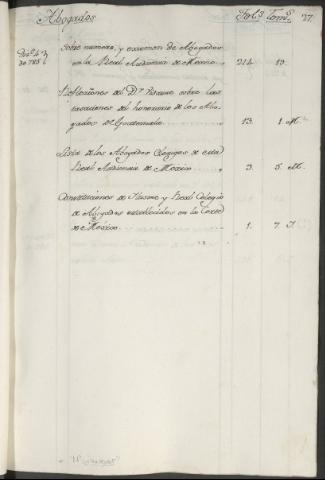 Abogados Fol.s Tom.s 37
Sobre numero, y examen de Abogados
de 785
en la Real Audiencia de Mexico 214 13
sobre las
tasaciones del honorario de los Abo-
gados de Guatemala 13. 1. M.
Lista de los Abogados Colegiales de esta
Real Audiencia de Mexico 3. 5. M.
Constituciones del Ilustre y Real Colegio
de Abogados establecidos en la Corte
de Mexico. 1. 7. I